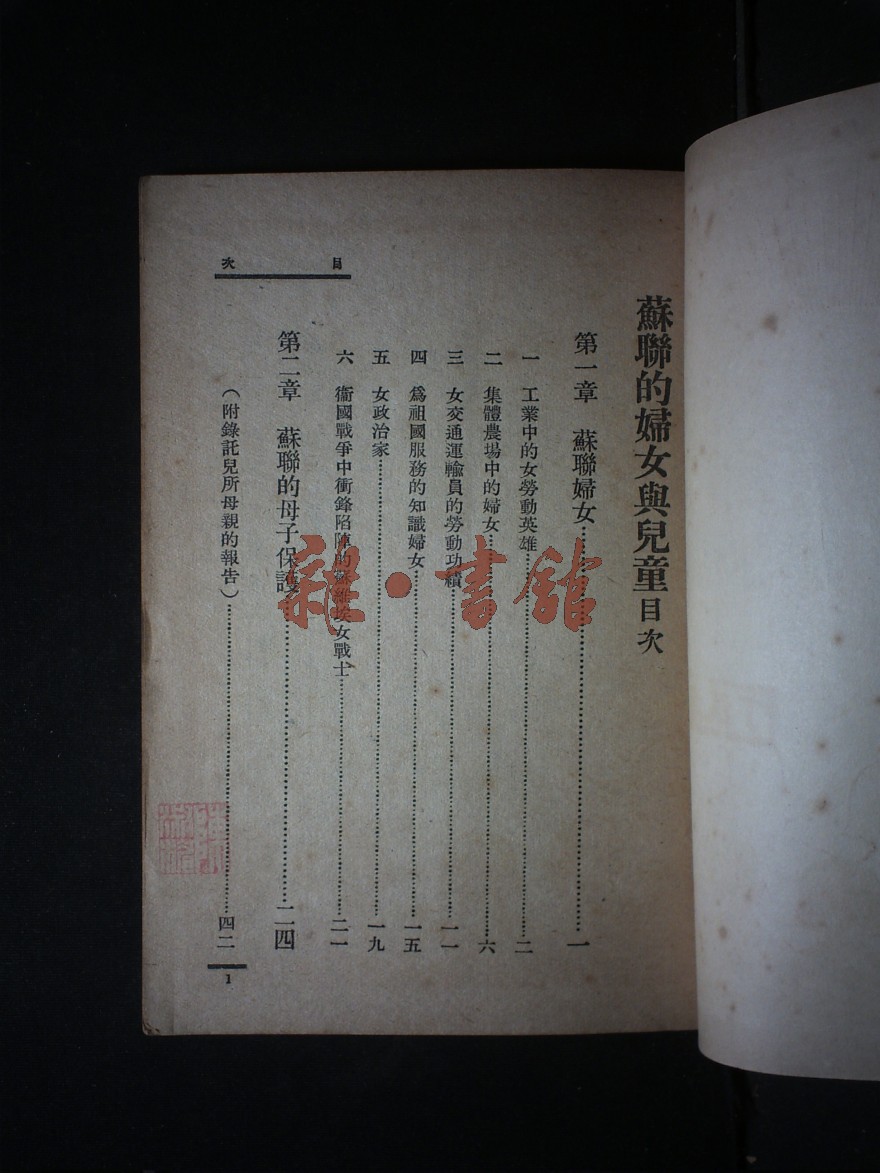 蘇聯的婦女與兒童目次
第一章 蘇聯婦女……一
一 工業中的女勞動英雄……二
二 集體農場中的婦女……六
三 女交通運輸員的勞動功績……一一
四 爲祖國服務的知識婦女……一五
五 女政治家……一九
六 衞國戰爭中衝鋒陷陣的蘇維埃女戰士……二一
第二章 蘇聯的母子保護……二四
（附錄託兒所母親的報告）……四二
目次
1
雜·書館